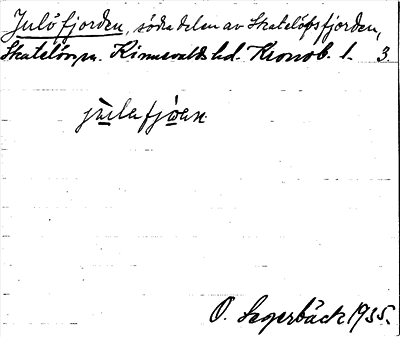 Julöfjorden, södra delen av Skatelöfsfjorden,
Skatelöv sn. Kinnevalds hd. Kronob. l. 3
O. Segerbäck 1935.